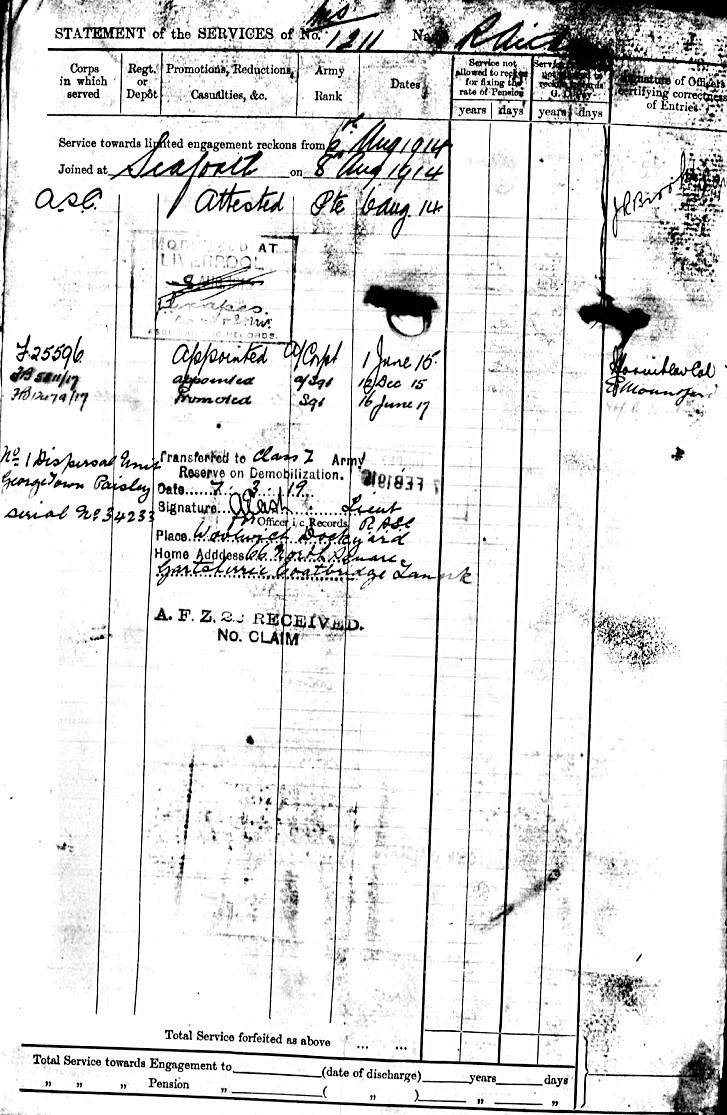 STATEMENT of the SERVICES of No. MS/1211 Name R Dick
Corps in which served
Regt. or Depôt
Promotions, Reductions, Casualties, &c.
Army Rank
Dates
Service not allowed to reckon for fixing the rate of Pension
years days
years days
Signature of Officers certifying correctness of Entries
Service towards limited engagement reckons from 6th Aug 1914
Joined at Seaforth on 8th Aug 1914
A.S.C. Attested Pte 6 Aug 14
MOBILIZED AT
LIVERPOOL
RECORDS.
F25596 Appointed A/Corpl 1 June 15
appointed a/Sgt 12 Dec 15
Promoted Sgt 16 June 17
No. 1 Dispersal Unit
Georgetown Paisley
serial No 34233
Transferred to Class Z Army
Reserve on Demobilization.
Date 7.3.19
Signature Lieut
Officer i/c Records RASC
Place Woolwich Dockyard
Home Adddess 66 North Square
Gartsherrie Coatbridge Lanark
A. F. Z. 22 RECEIVED.
No. CLAIM
Total Service forfeited as above ... ...
Total Service towards Engagement to (date of discharge) years days
" " " Pension " ( " ) " "